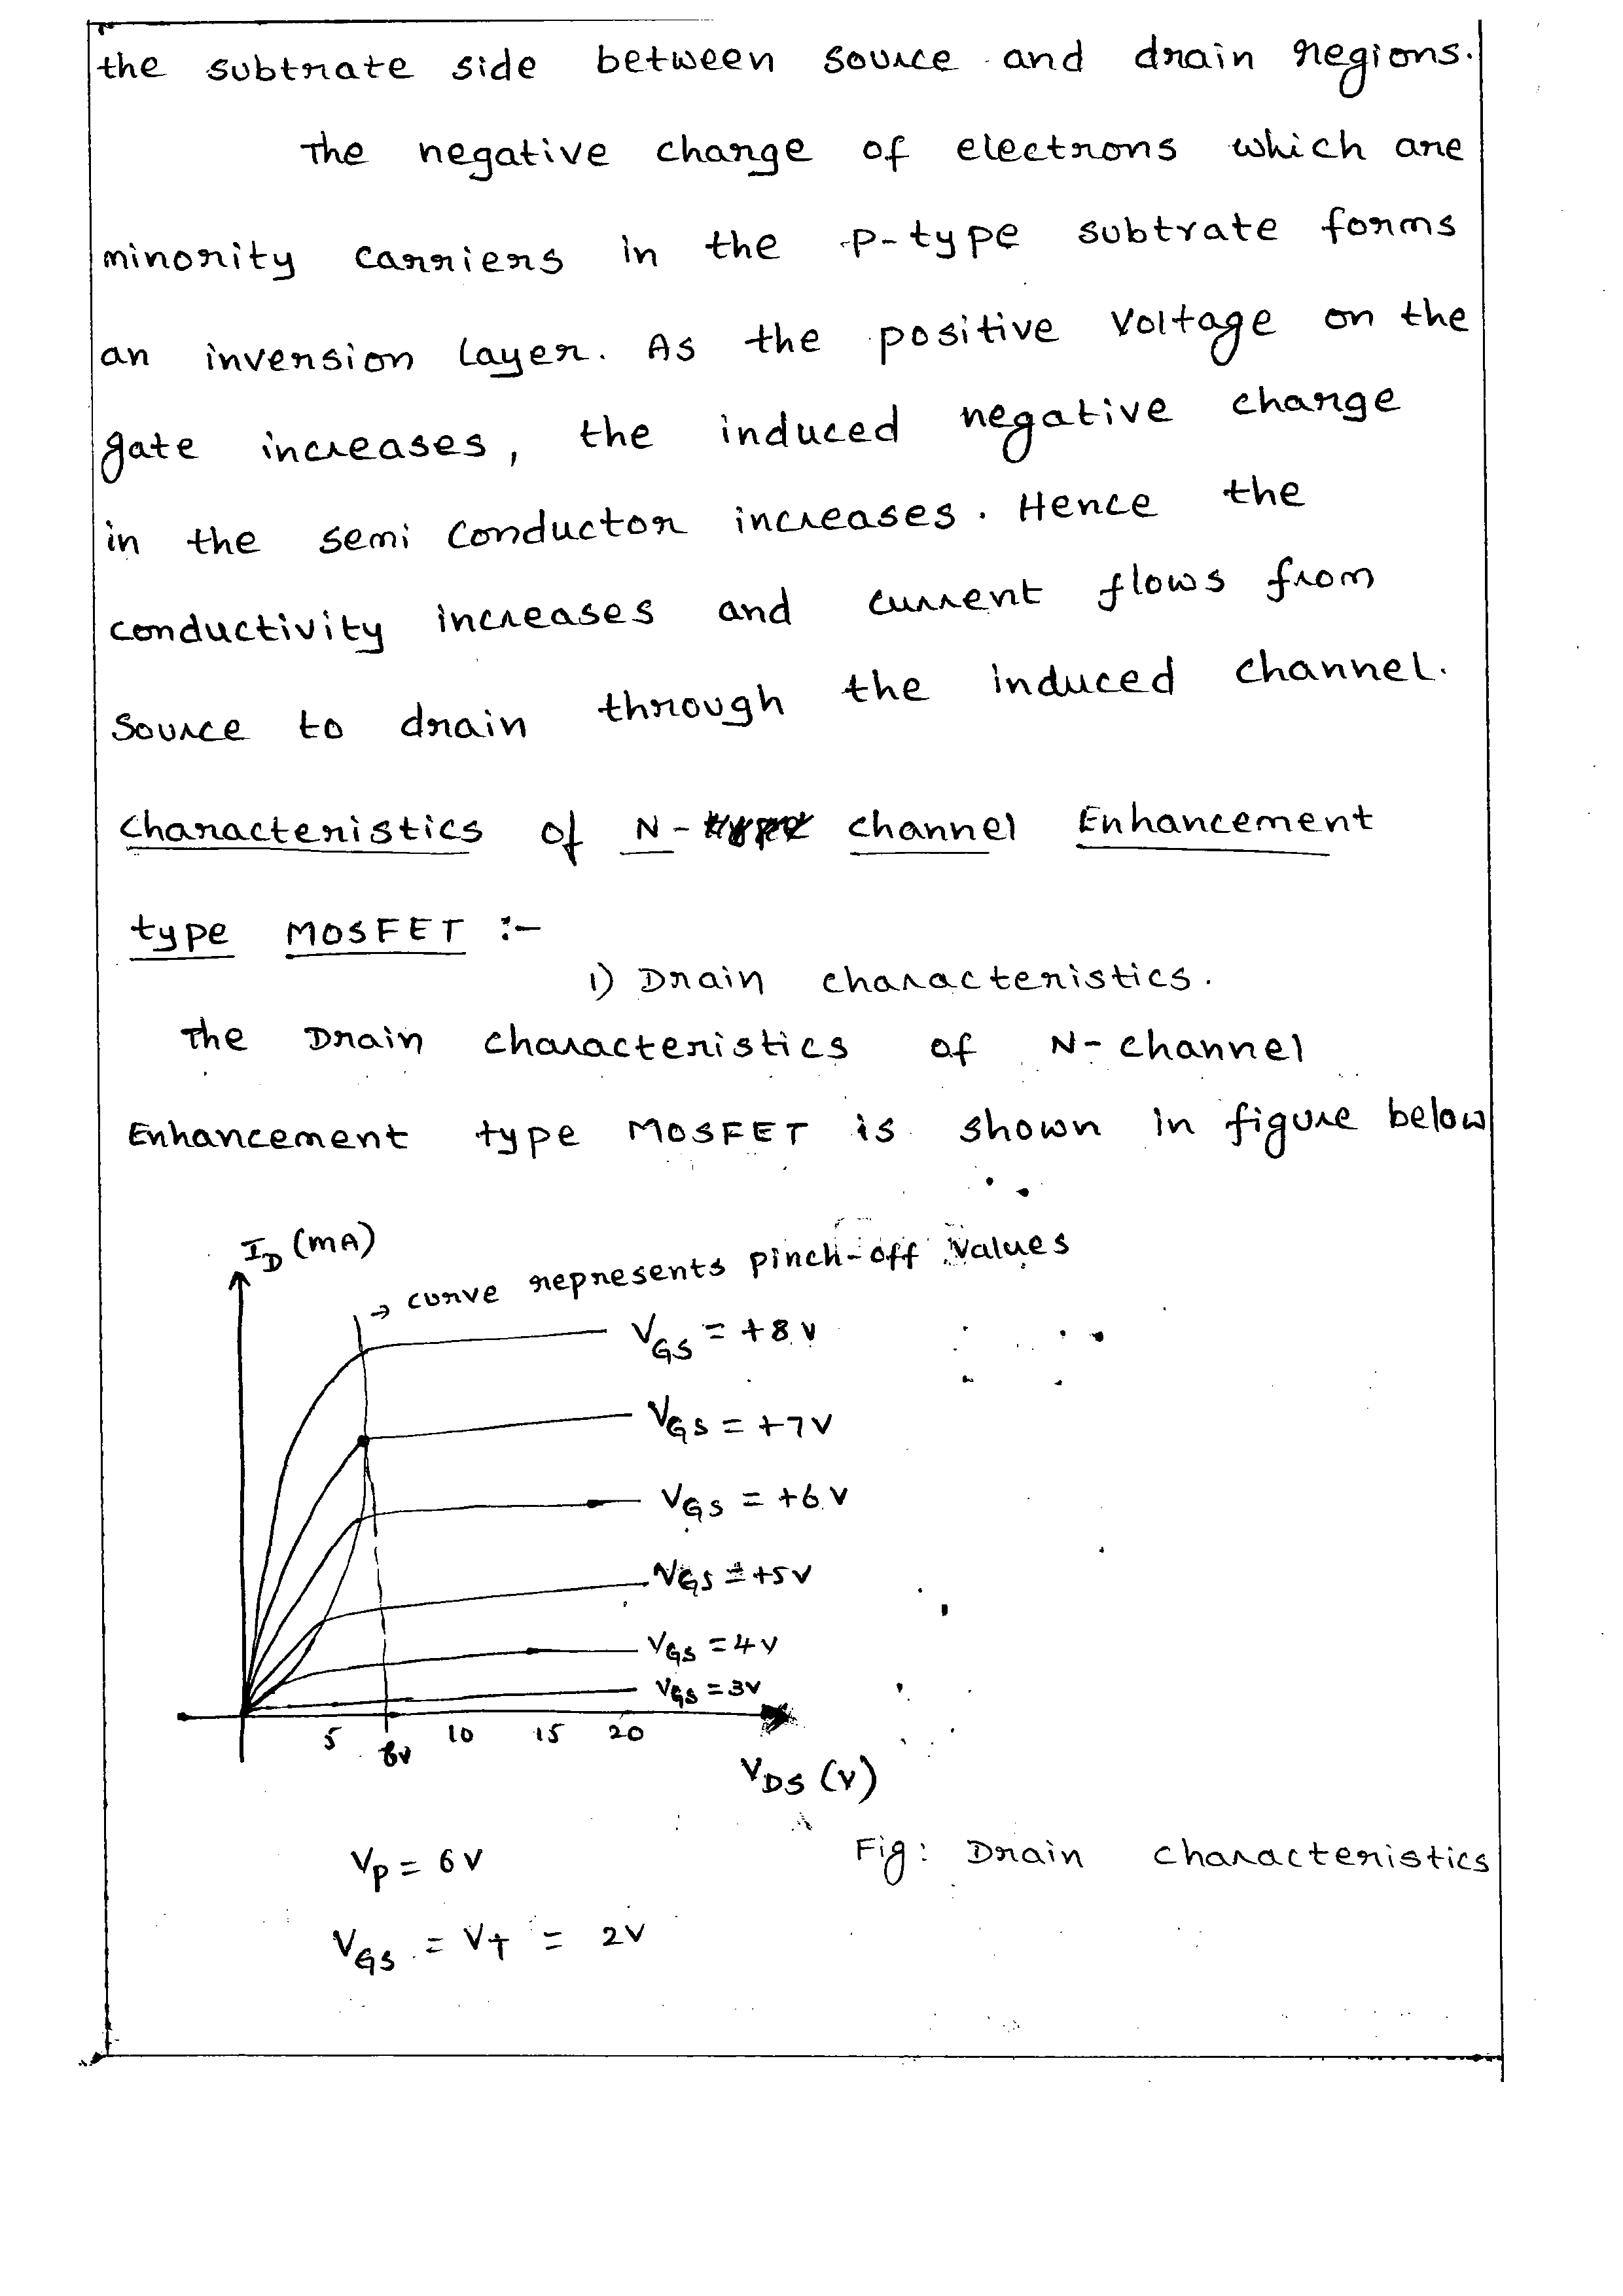 the subtrate side between source and drain regions.
The negative charge of electrons which are
minority carriers in the P-type subtrate forms
an inversion layer. As the positive voltage on the
gate increases, the induced negative charge
in the semi conductor increases. Hence the
conductivity increases and current flows from
source to drain through the induced channel.
Characteristics of N- channel Enhancement
type MOSFET :-
1) Drain characteristics.
The Drain characteristics of N-channel
Enhancement type MOSFET is shown in figure below
ID (mA)
→ curve represents pinch-off values
VGS = +8V
VGS = +7V
VGS = +6V
VGS = +5V
VGS = 4V
VGS = 3V
5 6V 10 15 20
VDS (V)
Vp = 6V
Fig: Drain characteristics
VGS = VT = 2V